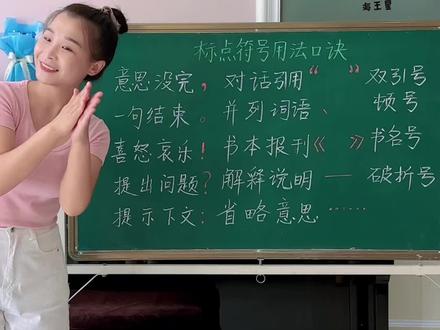 海王星
标点符号用法口诀
意思没完，对话引用“ ”双引号
一句结束。并列词语、顿号
喜怒哀乐！书本报刊《 》书名号
提出问题？解释说明——破折号
提示下文：省略意思……